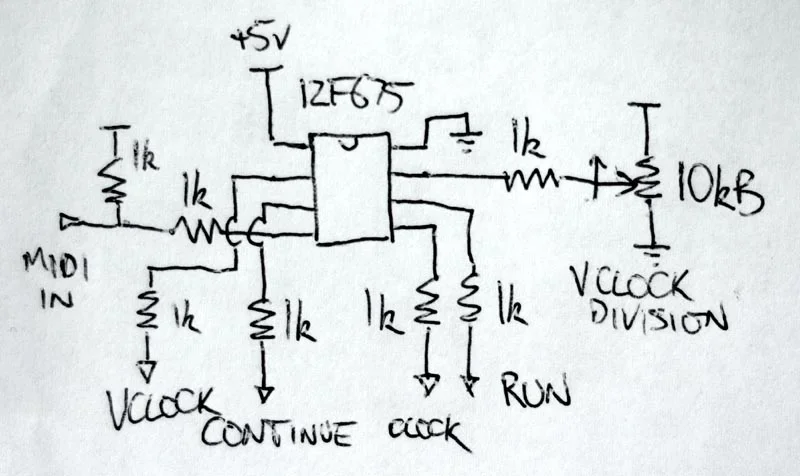 +5V
12F675
1k
1k
1k
10kB
MIDI
IN
VCLOCK
DIVISION
1k
1k
1k
1k
VCLOCK
CONTINUE
CLOCK
RUN